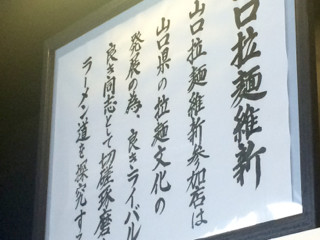 口拉麺維新
山口拉麺維新参加店は
山口県の拉麺文化の
発展の為、良きライバル
良き同志として切磋琢磨
ラーメン道を探究する